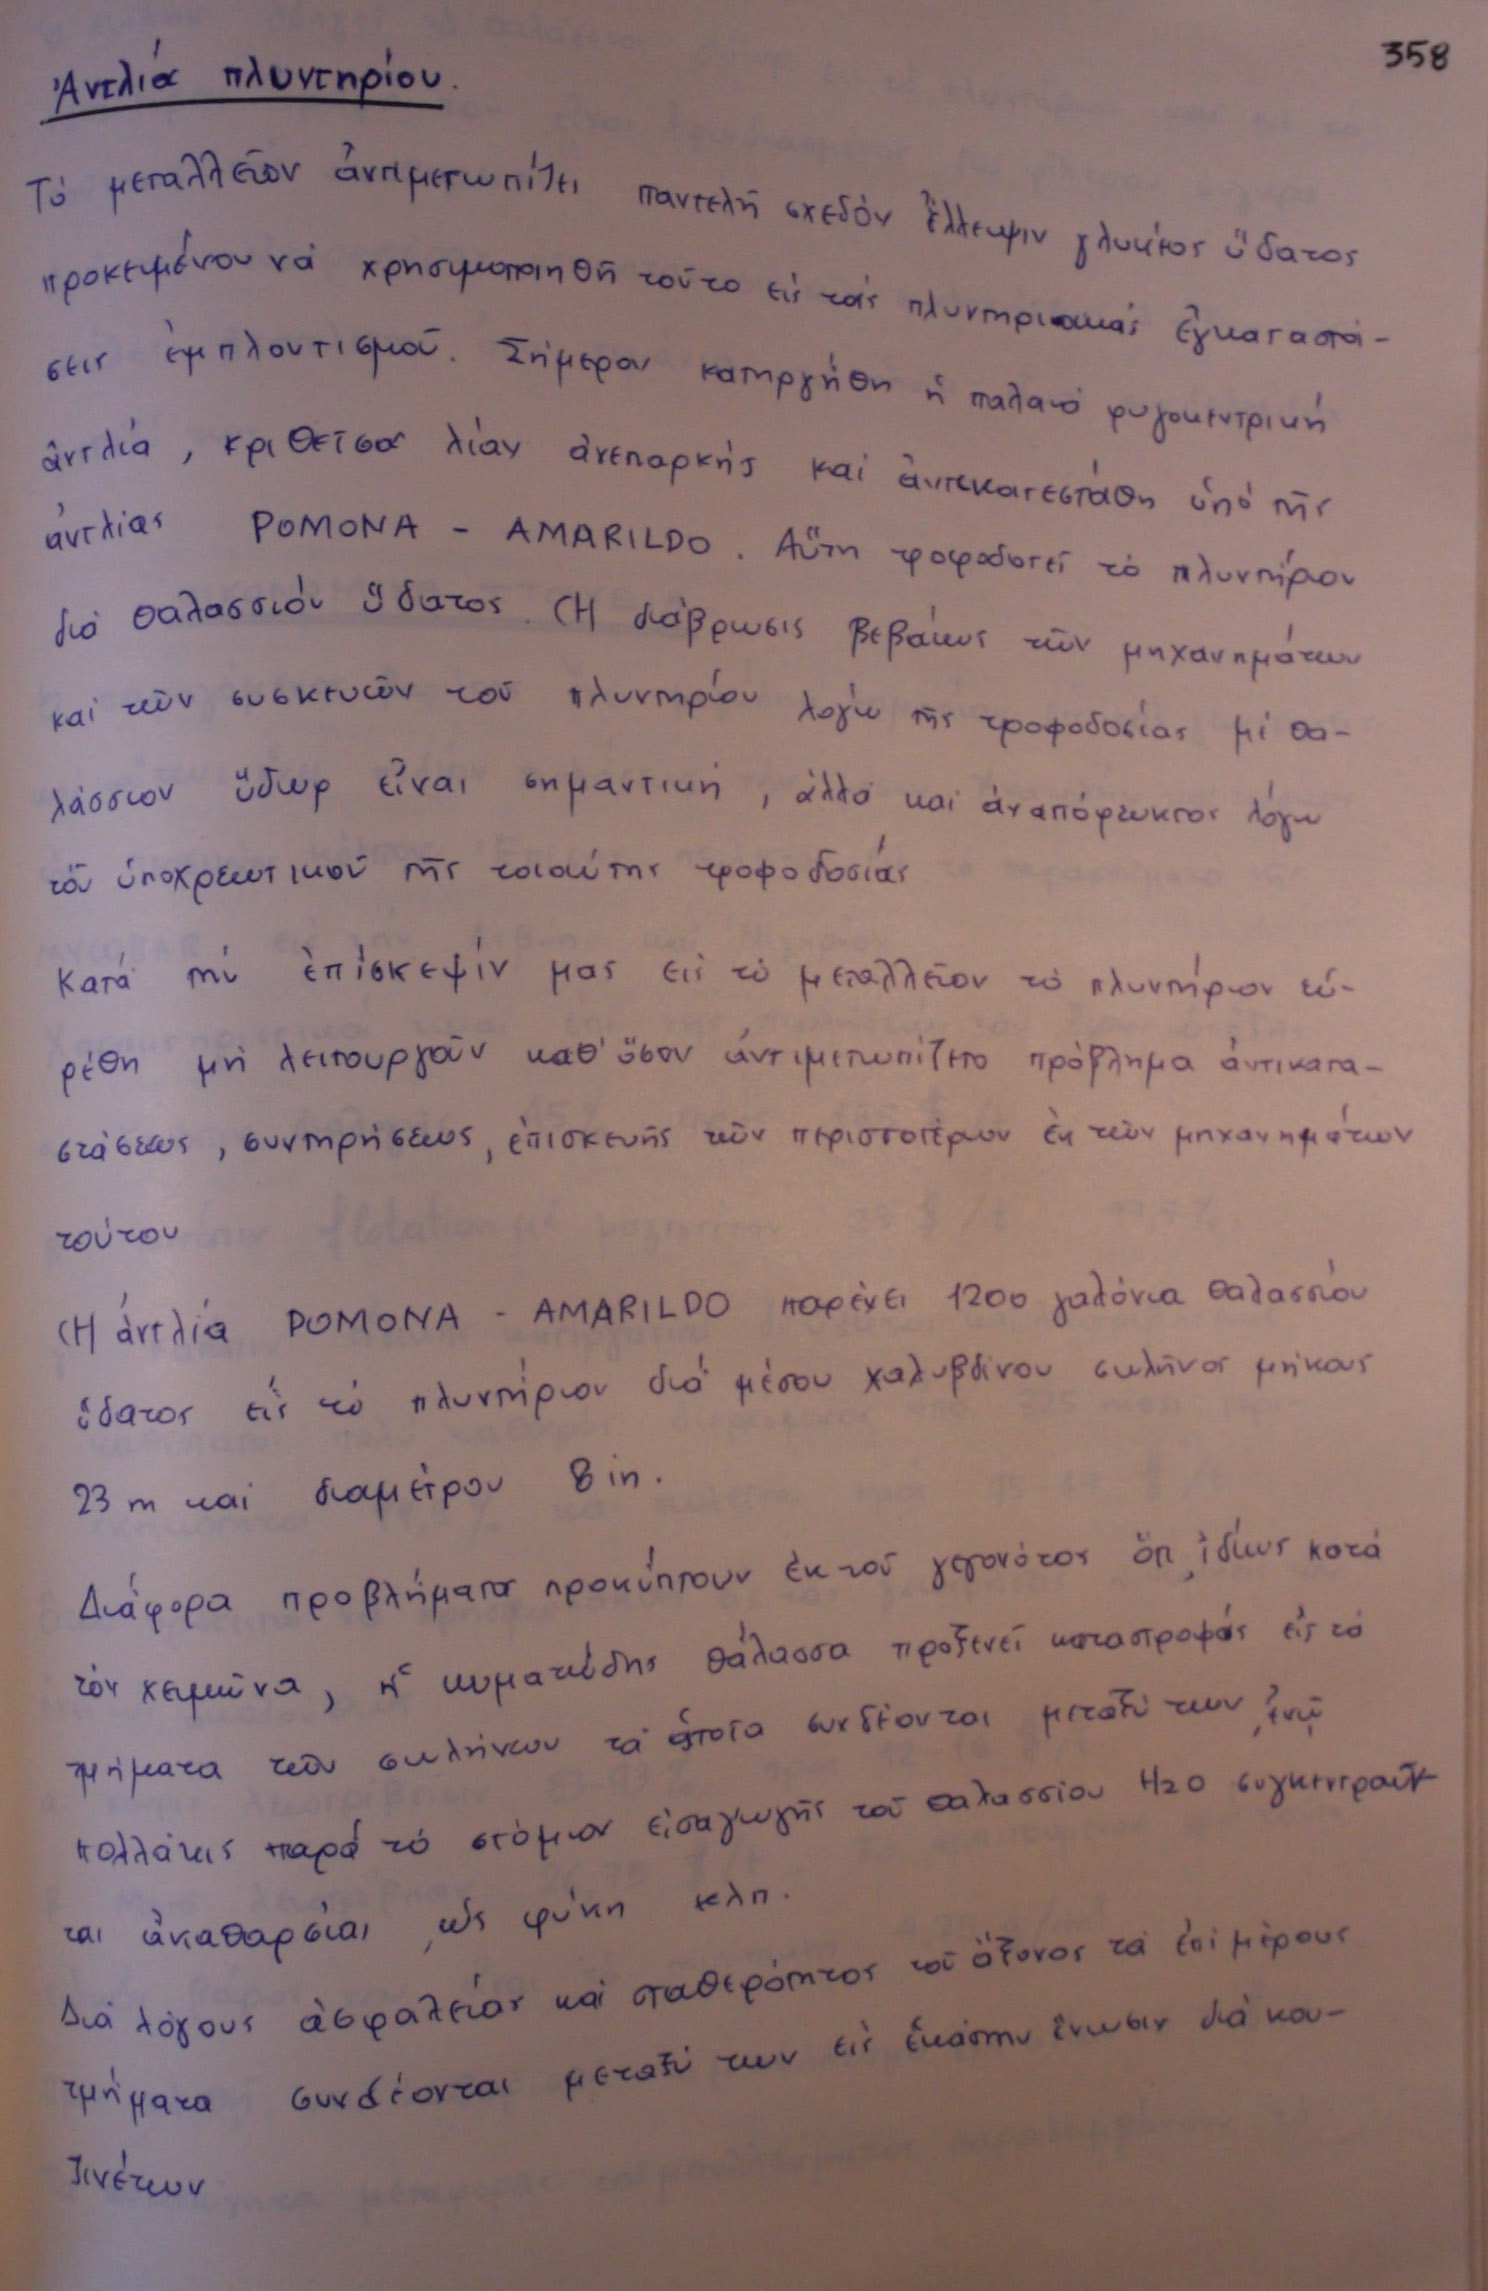 358
Ἀντλία πλυντηρίου.
Τό μεταλλεῖον ἀντιμετωπίζει παντελῆ σχεδόν ἔλλειψιν γλυκέος ὕδατος
προκειμένου νά χρησιμοποιηθῆ τοῦτο εἰς τάς πλυντηριακάς ἐγκαταστά-
σεις ἐμπλουτισμοῦ. Σήμερον κατηργήθη ἡ παλαιά φυγοκεντρική
ἀντλία, κριθεῖσα λίαν ἀνεπαρκής καί ἀντικατεστάθη ὑπό τῆς
ἀντλίας POMONA - AMARILDO. Αὕτη τροφοδοτεῖ τό πλυντήριον
διά θαλασσίου ὕδατος. (Ἡ διάβρωσις βεβαίως τῶν μηχανημάτων
καί τῶν συσκευῶν τοῦ πλυντηρίου λόγω τῆς τροφοδοσίας μέ θα-
λάσσιον ὕδωρ εἶναι σημαντική, ἀλλά καί ἀναπόφευκτος λόγω
τοῦ ὑποχρεωτικοῦ τῆς τοιαύτης τροφοδοσίας
Κατά τήν ἐπίσκεψίν μας εἰς τό μεταλλεῖον τό πλυντήριον εὑ-
ρέθη μή λειτουργοῦν καθ' ὅσον ἀντιμετωπίζετο πρόβλημα ἀντικατα-
στάσεως, συντηρήσεως, ἐπισκευῆς τῶν περισσοτέρων ἐκ τῶν μηχανημάτων
τούτου
(Ἡ ἀντλία POMONA - AMARILDO παρέχει 1200 γαλόνια θαλασσίου
ὕδατος εἰς τό πλυντήριον διά μέσου χαλυβδίνου σωλῆνος μήκους
23 m καί διαμέτρου 8 in.
Διάφορα προβλήματα προκύπτουν ἐκ τοῦ γεγονότος ὅτι, ἰδίως κατά
τόν χειμῶνα, ἡ κυματώδης θάλασσα προξενεῖ καταστροφάς εἰς τά
τμήματα τῶν σωλήνων τά ὁποῖα συνδέονται μεταξύ των, ἐνῶ
πολλάκις παρά τό στόμιον εἰσαγωγῆς τοῦ θαλασσίου H2O συγκεντροῦν
ται ἀκαθαρσίαι, ὡς φύκη κλπ.
Διά λόγους ἀσφαλείας καί σταθερότητος τοῦ ἄξονος τά ἐπί μέρους
τμήματα συνδέονται μεταξύ των εἰς ἑκάστην ἕνωσιν διά κου-
ζινέτων